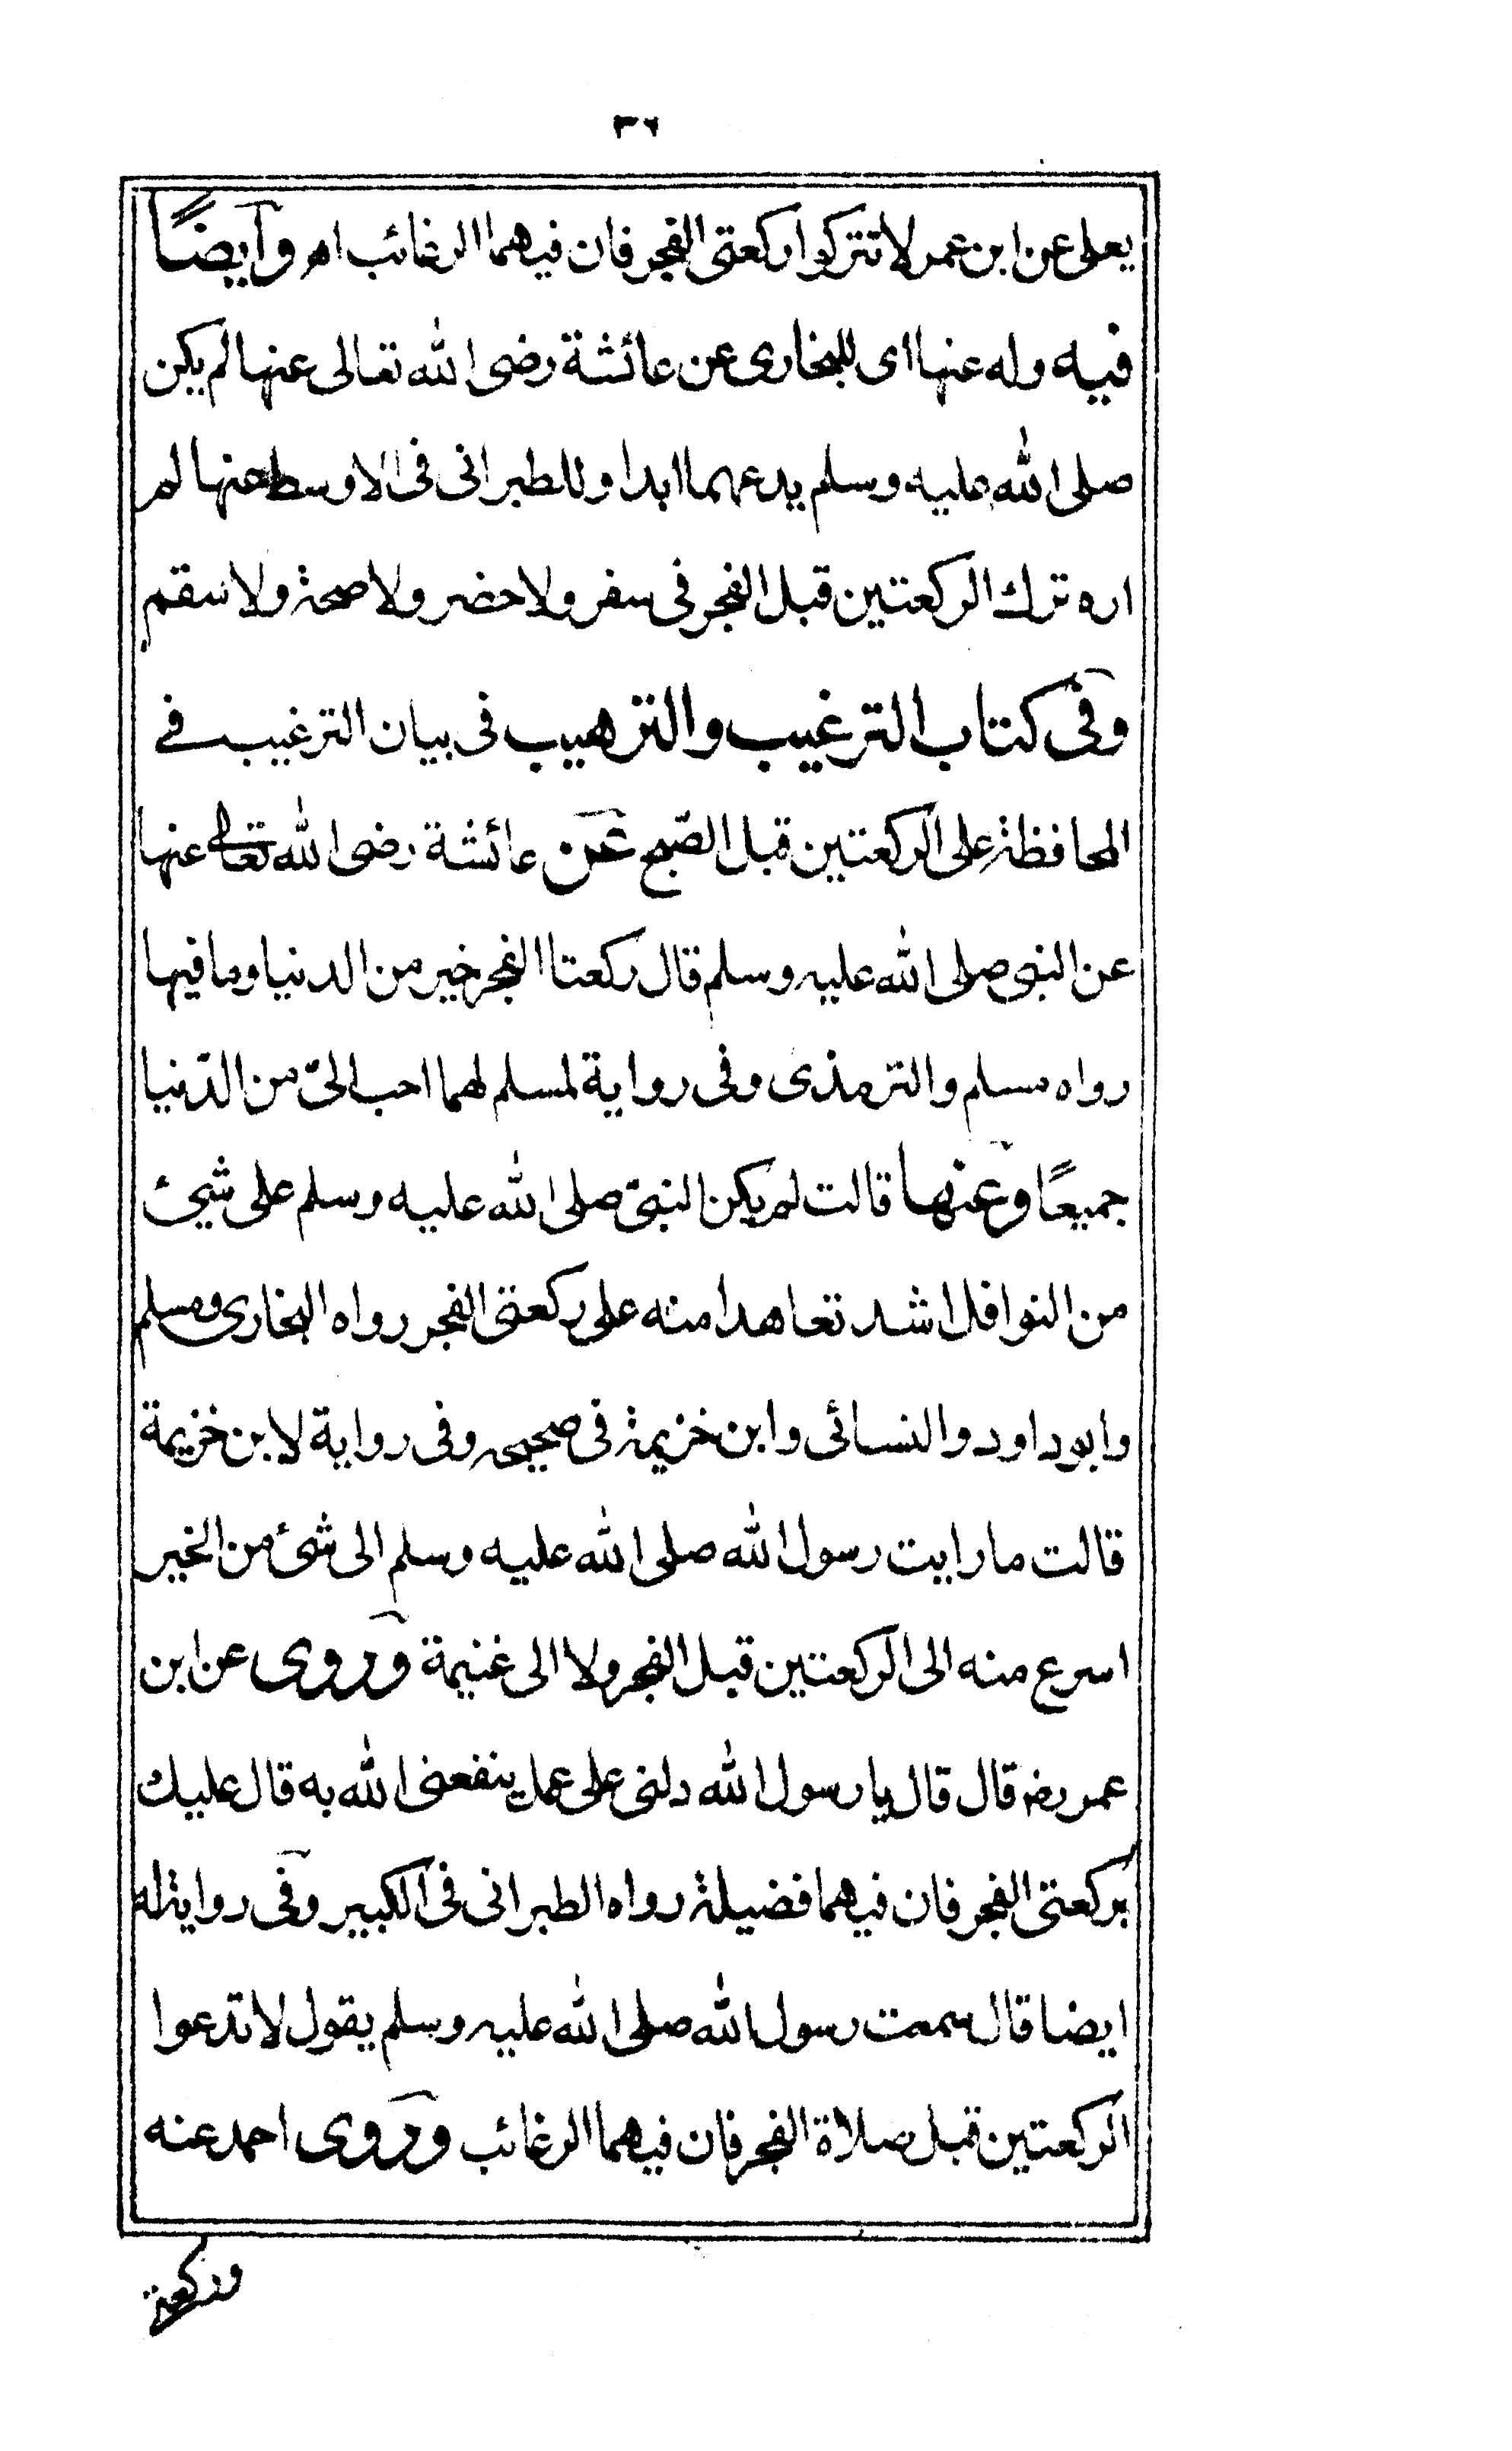 ٣٦
يعلى عن ابن عمر لا تتركوا ركعتى الفجر فان فيهما الرغائب اھ وايضًا
فيه وله عنها اى للبخارى عن عائشة رضى الله تعالى عنها لم يكن
صلى الله عليه وسلم يدعهما ابدا وللطبرانى فى الاوسط عنها لم
اره ترك الركعتين قبل الفجر فى سفر ولا حضر ولا صحة ولا سقم
وفى كتاب الترغيب والترهيب فى بيان الترغيب فے
المحافظة على الركعتين قبل الصّبح عَن عائشة رضى الله تعالى عنها
عن النبى صلى الله عليه وسلم قال ركعتا الفجر خير من الدنيا وما فيها
رواه مسلم والترمذى وفى رواية لمسلم لهما احب الىّ من الدّنيا
جميعًا وعنها قالت لم يكن النبىّ صلى الله عليه وسلم على شئ
من النوافل اشد تعاهدا منه على ركعتى الفجر رواه البخارى ومسلم
وابوداود والنسائى وابن خزيمة فى صحيحه وفى رواية لابن خزيمة
قالت ما رايت رسول الله صلى الله عليه وسلم الى شئ من الخير
اسرع منه الى الركعتين قبل الفجر ولا الى غنيمة وروى عن ابن
عمر رضہ قال قال يا رسول الله دلنى على عمل ينفعنى الله به قال عليك
بركعتى الفجر فان فيهما فضيلة رواه الطبرانى فى الكبير وفى رواية له
ايضا قال سمعت رسول الله صلى الله عليه وسلم يقول لا تدعوا
الركعتين قبل صلاة الفجر فان فيهما الرغائب وروى احمد عنه